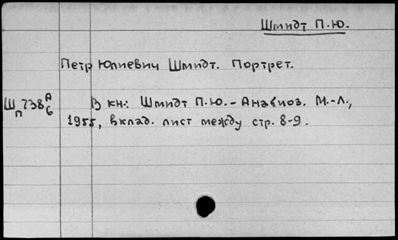 Шмидт П.Ю.
Петр Юлиевич Шмидт. Портрет.
Ш738 А
п б
В кн.: Шмидт П.Ю.-Анабиоз. М.-Л.,
1955, вклад. лист между стр. 8-9.